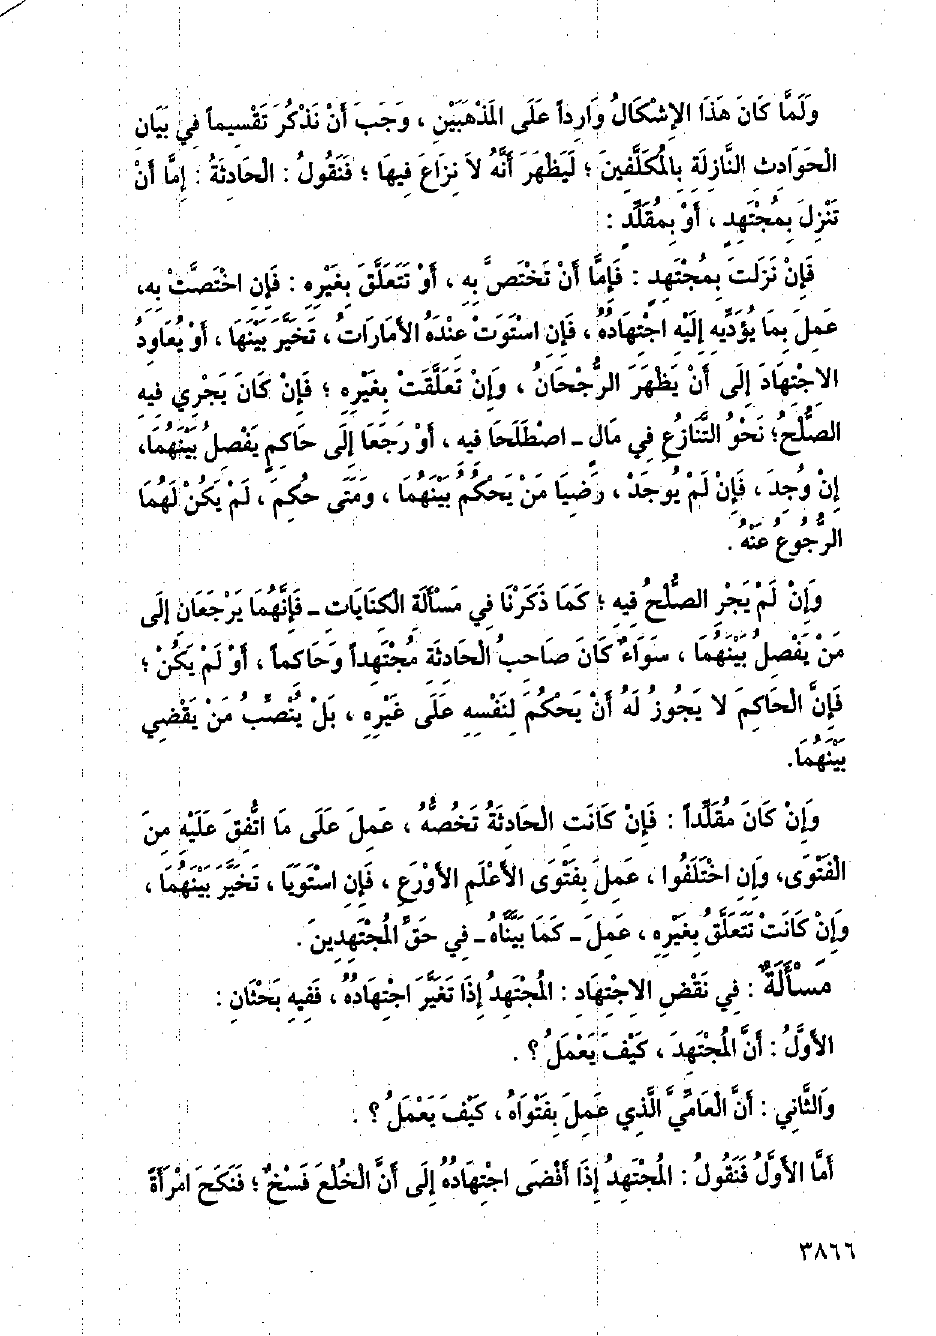 وَلَمَّا كَانَ هَذَا الإِشْكَالُ وَارِداً عَلَى المَذْهَبَيْنِ ، وَجَبَ أَنْ نَذْكُرَ تَقْسِيماً فِي بَيَانِ
الْحَوَادِثِ النَّازِلَةِ بِالْمُكَلَّفِينَ ؛ لَيَظْهَرَ أَنَّهُ لاَ نِزَاعَ فِيهَا ؛ فَنَقُولُ : الْحَادِثَةُ : إِمَّا أَنْ
تَنْزِلَ بِمُجْتَهِدٍ ، أَوْ بِمُقَلِّدٍ :
فَإِنْ نَزَلَتْ بِمُجْتَهِدٍ : فَإِمَّا أَنْ تَخْتَصَّ بِهِ ، أَوْ تَتَعَلَّقَ بِغَيْرِهِ : فَإِنِ اخْتَصَّتْ بِهِ،
عَمِلَ بِمَا يُؤَدِّيهِ إِلَيْهِ اجْتِهَادُهُ ، فَإِنِ اسْتَوَتْ عِنْدَهُ الأَمَارَاتُ ، تَخَيَّرَ بَيْنَهَا ، أَوْ يُعَاوِدُ
الاِجْتِهَادَ إِلَى أَنْ يَظْهَرَ الرُّجْحَانُ ، وَإِنْ تَعَلَّقَتْ بِغَيْرِهِ ؛ فَإِنْ كَانَ يَجْرِي فِيهِ
الصُّلْحُ؛ نَحْوُ التَّنَازُعِ فِي مَالٍ ـ اصْطَلَحَا فِيهِ ، أَوْ رَجَعَا إِلَى حَاكِمٍ يَفْصِلُ بَيْنَهُمَا،
إِنْ وُجِدَ ، فَإِنْ لَمْ يُوجَدْ ، رَضِيَا مَنْ يَحْكُمُ بَيْنَهُمَا ، وَمَتَى حُكِمَ ، لَمْ يَكُنْ لَهُمَا
الرُّجُوعُ عَنْهُ .
وَإِنْ لَمْ يَجْرِ الصُّلْحُ فِيهِ ؛ كَمَا ذَكَرْنَا فِي مَسْأَلَةِ الْكِنَايَاتِ ـ فَإِنَّهُمَا يَرْجَعَانِ إِلَى
مَنْ يَفْصِلُ بَيْنَهُمَا ، سَوَاءٌ كَانَ صَاحِبُ الْحَادِثَةِ مُجْتَهِداً وَحَاكِماً ، أَوْ لَمْ يَكُنْ ؛
فَإِنَّ الْحَاكِمَ لا يَجُوزُ لَهُ أَنْ يَحْكُمَ لِنَفْسِهِ عَلَى غَيْرِهِ ، بَلْ يُنْصِّبُ مَنْ يَقْضِي
بَيْنَهُمَا.
وَإِنْ كَانَ مُقَلِّداً : فَإِنْ كَانَتِ الْحَادِثَةُ تَخُصُّهُ ، عَمِلَ عَلَى مَا اتُّفِقَ عَلَيْهِ مِنَ
الْفَتْوَى، وَإِنِ اخْتَلَفُوا ، عَمِلَ بِفَتْوَى الأَعْلَمِ الأَوْرَعِ ، فَإِنِ اسْتَوَيَا ، تَخَيَّرَ بَيْنَهُمَا ،
وَإِنْ كَانَتْ تَتَعَلَّقُ بِغَيْرِهِ ، عَمِلَ ـ كَمَا بَيَّنَّاهُ ـ فِي حَقِّ المُجْتَهِدِينَ .
مَسْأَلَةٌ : فِي نَقْضِ الاِجْتِهَادِ : المُجْتَهِدُ إِذَا تَغَيَّرَ اجْتِهَادُهُ ، فَفِيهِ بَحْثَانِ :
الأَوَّلُ : أَنَّ المُجْتَهِدَ ، كَيْفَ يَعْمَلُ ؟ .
وَالثَّانِي : أَنَّ الْعَامِّيَّ الَّذِي عَمِلَ بِفَتْوَاهُ ، كَيْفَ يَعْمَلُ ؟ .
أَمَّا الأَوَّلُ فَنَقُولُ : المُجْتَهِدُ إِذَا أَفْضَى اجْتِهَادُهُ إِلَى أَنَّ الْخُلْعَ فَسْخٌ ؛ فَنَكَحَ امْرَأَةً
٣٨٦٦